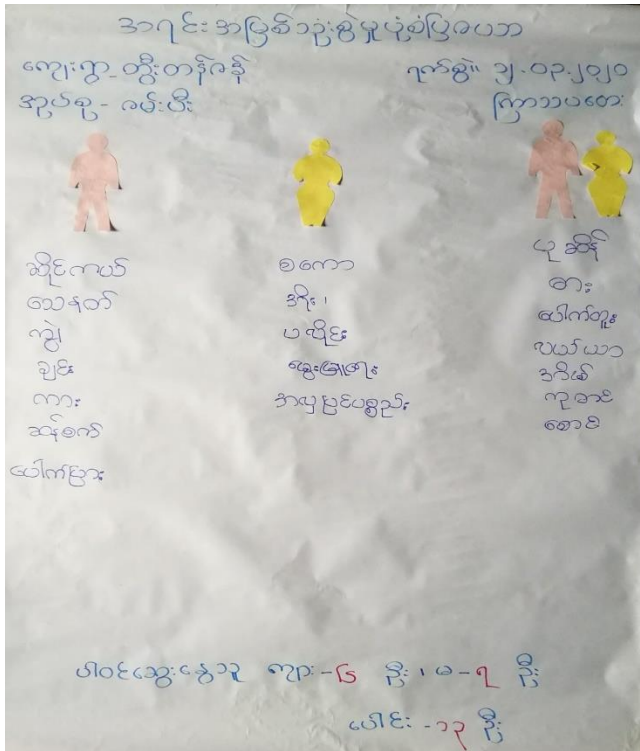 အရင်းအမြစ်သုံးစွဲမှုပုံစံပြဇယား
ကျေးရွာ - တွီးတန်ဇန်
ရက်စွဲ။ ၁၂.၀၃.၂၀၂၀
အုပ်စု - ဇမ်းပီး
ကြာသပတေး
ဆိုင်ကယ်
သေနတ်
ကျွဲ
ချင်း
ကား
ဆန်စက်
ပေါက်ပြား
စကော
အိုး၊
ပလိုင်း
မွေးမြူရေး
အလှပြင်ပစ္စည်း
ပုဆိန်
ဓား
ပေါက်တူး
လယ်ယာ
အိမ်
ကုတင်
စောင်
ပါဝင်ဆွေးနွေးသူ ကျား - ၆ ဦး ၊ မ - ၇ ဦး
ပေါင်း - ၁၃ ဦး